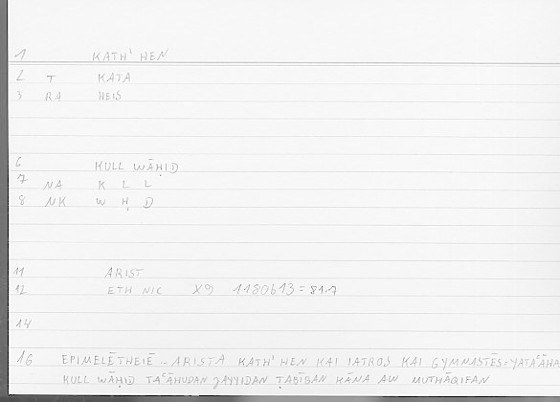 1 KATH' HEN
2 T KATA
3 RA HEIS
6 KULL WĀḤID
7 NA K L L
8 NK W Ḥ D
11 ARIST
12 ETH NIC X9 1180b13 = 81.7
14
16 EPIMELĒTHEIĒ – ARISTA KATH' HEN KAI IATROS KAI GYMNASTĒS = YATAʿĀHA
KULL WĀḤID TAʿĀHUDAN ǦAYYIDAN ṬABĪBAN KĀNA AW MUTHĀQIFAN